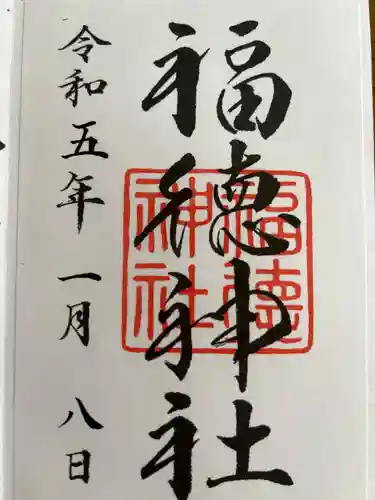 福德神社
令和五年一月八日
福德神社